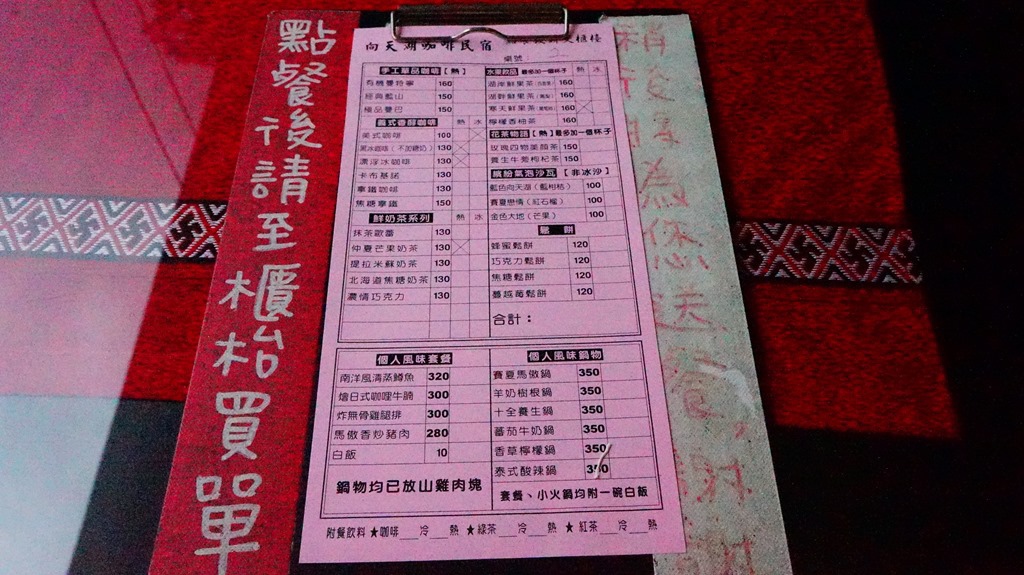 點餐後請至櫃枱買單
向天湖咖啡民宿
桌號
手工單品咖啡【熱】
有機曼特寧 160
經典藍山 150
極品曼巴 150
義式香醇咖啡 熱 冰
美式咖啡 100
黑冰咖啡(不加糖奶) 130
漂浮冰咖啡 130
卡布基諾 130
拿鐵咖啡 130
焦糖拿鐵 150
鮮奶茶系列 熱 冰
抹茶歐蕾 130
仲夏芒果奶茶 130
提拉米蘇奶茶 130
北海道焦糖奶茶 130
濃情巧克力 130
水果飲品 最多加一個杯子 熱 冰
湖岸鮮果茶 160
湖畔鮮果茶 160
寒天鮮果茶 160
檸檬香柚茶 160
花茶物語【熱】最多加一個杯子
玫瑰四物美顏茶 150
養生牛蒡枸杞茶 150
繽紛氣泡沙瓦【非冰沙】
藍色向天湖(藍柑桔) 100
賽夏戀情(紅石榴) 100
金色大地(芒果) 100
鬆餅
蜂蜜鬆餅 120
巧克力鬆餅 120
焦糖鬆餅 120
蔓越莓鬆餅 120
合計:
個人風味套餐
南洋風清蒸鱒魚 320
燴日式咖哩牛腩 300
炸無骨雞腿排 300
馬傲香炒豬肉 280
白飯 10
鍋物均已放山雞肉塊
個人風味鍋物
賽夏馬傲鍋 350
羊奶樹根鍋 350
十全養生鍋 350
蕃茄牛奶鍋 350
香草檸檬鍋 350
泰式酸辣鍋 350
套餐、小火鍋均附一碗白飯
附餐飲料 ★咖啡___冷___熱 ★綠茶___冷___熱 ★紅茶___冷___熱
稍後服為您送